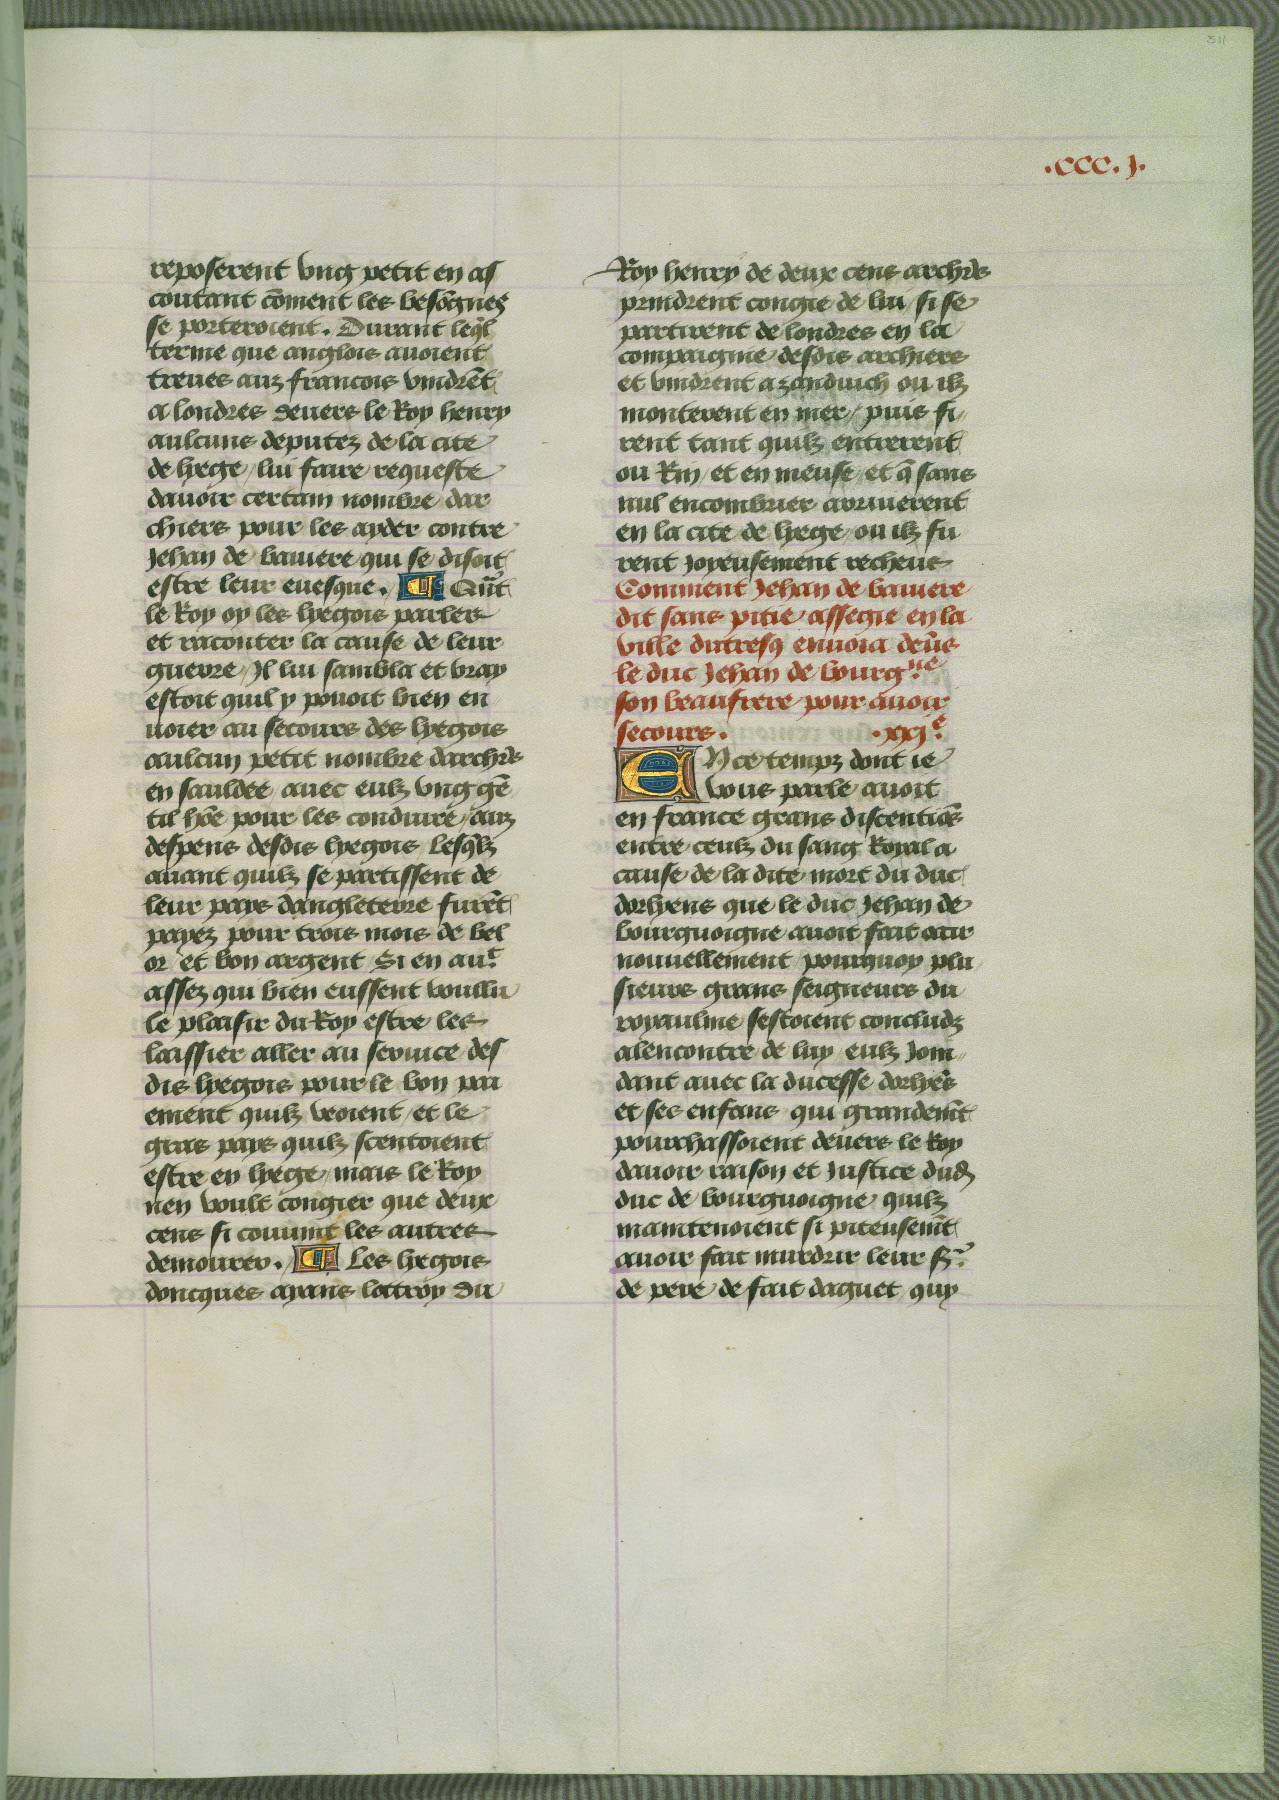 .CCC.J.
reposerent vng petit en as
coutant cōment les besōgnes
se porteroient. Durant leql̄
terme que anglois auoient
treues auz francois vindrēt
a londres deuers le Roy henry
aulcuns deputez de la cite
de lyege / lui faire requeste
dauoir certain nombre dar
chiers pour les ayder contre
Jehan de bauiere qui se disoit
estre leur euesque. ¶ Quāt
le Roy oy les lyegois parler
et raconter la cause de leur
guerre / Jl lui sambla et vray
estoit quil y pouoit bien en
uoier au secours des lyegois
aulcun petit nombre darchrs̄
en sauldee / auec eulz vng gē
til hōe pour les conduire / auz
despens desdis lyegois Lesqlz̄
auant quilz se partissent de
leur pays dangleterre furēt
payez pour trois mois de bel
or et bon argent Si en auᵗ
assez qui bien eussent voullu
le plaisir du Roy estre les
laissier aller au seruice des
dis lyegois pour le bon pai
ement quilz veoient / et le
gras pays quilz scentoient
estre en lyege / mais le Roy
nen voult congier que deux
cens si conuint les autres
demourer. ¶ Les lyegois
doncques ayans lottroy du
Roy henry de deux cens archrs̄
prindrent congie de lui / si se
partirent de londres en la
compaignie desdis archiers
et vindrent a zanduich ou ilz
monterent en mer / puis fi
rent tant quilz entrerent
ou Rin / et en meuse / et q̄ sans
nul encombrier arriuerent
en la cite de lyege / ou ilz fu
rent Joyeusement recheus
Comment Jehan de bauiere
dit sans pitie assegie en la
ville dutresq enuoia deūs
le duc Jehan de bourg.ⁿᵉ
son beaufrere pour auoir
secours. .xxj.ᵉ
EN ce temps dont ie
vous parle auoit
en france grans discentiōs
entre ceulz du sang Royal a
cause de la dite mort du duc
dorlyens que le duc Jehan de
bourguoigne auoit fait ocir
nouuellement pourquoy plu
sieurs grans seigneurs du
royaulme sestoient concludz
alencontre de luy / eulz Join
dant auec la ducesse dorlyēs
et ses enfans qui grandemēt
pourchassoient deuers le Roy
dauoir raison et Justice dud
duc de bourguoigne quilz
maintenoient si piteusemēt
auoir fait murdrir leur Sʳ.
de pere de fait daguet quy